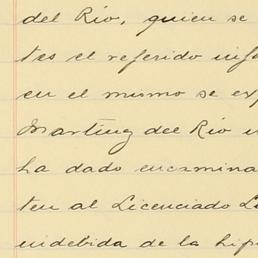 del Río, quien se
tes el referido info
en el mismo se ex
Martinez del Río u
ha dado encamina
ten al Licenciado L
indebida de la hip